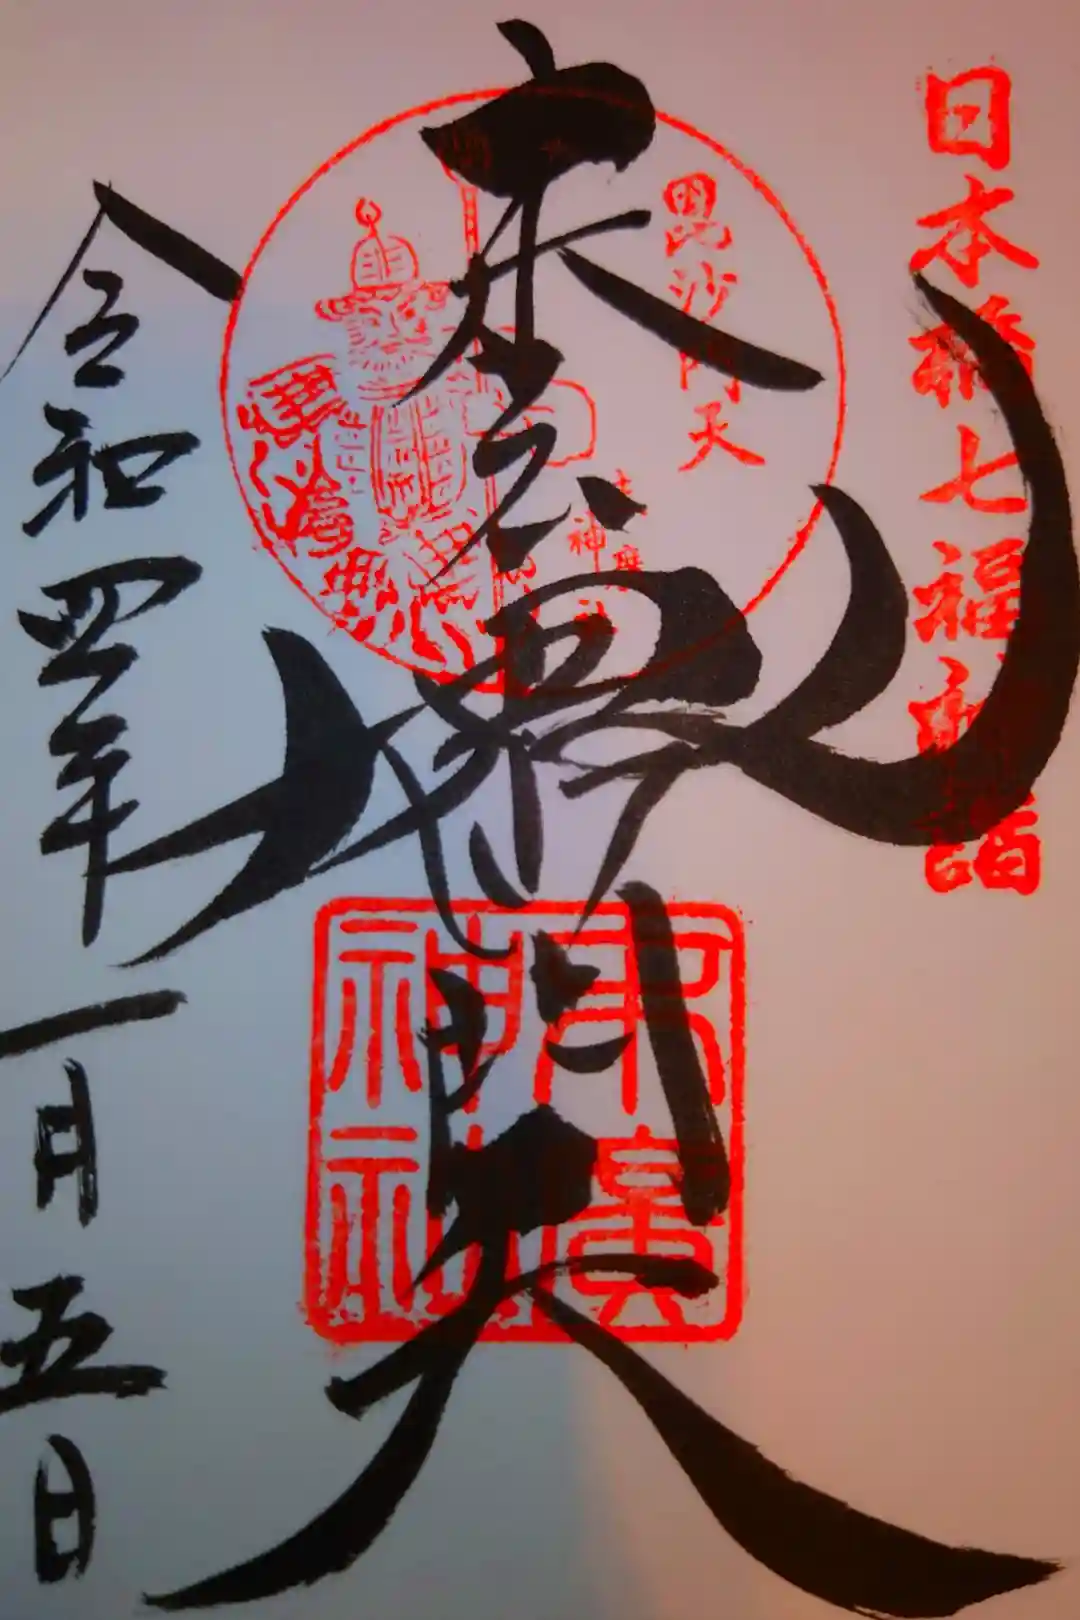 日本橋七福神詣
毘沙門天
末廣神社
末廣神社
毘沙門天
令和四年一月五日